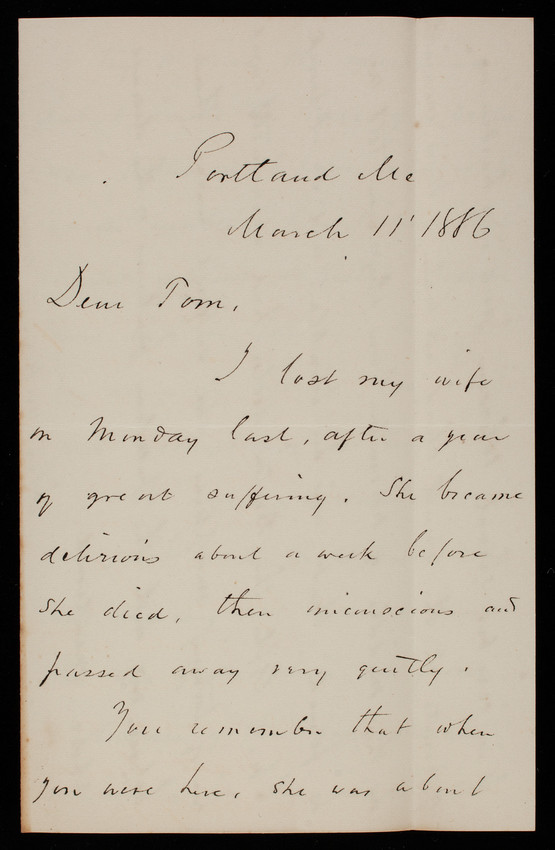 Portland Me
March 11' 1886
Dear Tom,
I lost my wife
on Monday last, after a year
of great suffering. She became
delirious about a week before
she died, then unconscious and
passed away very gently.
You remember that when
you were here, she was about